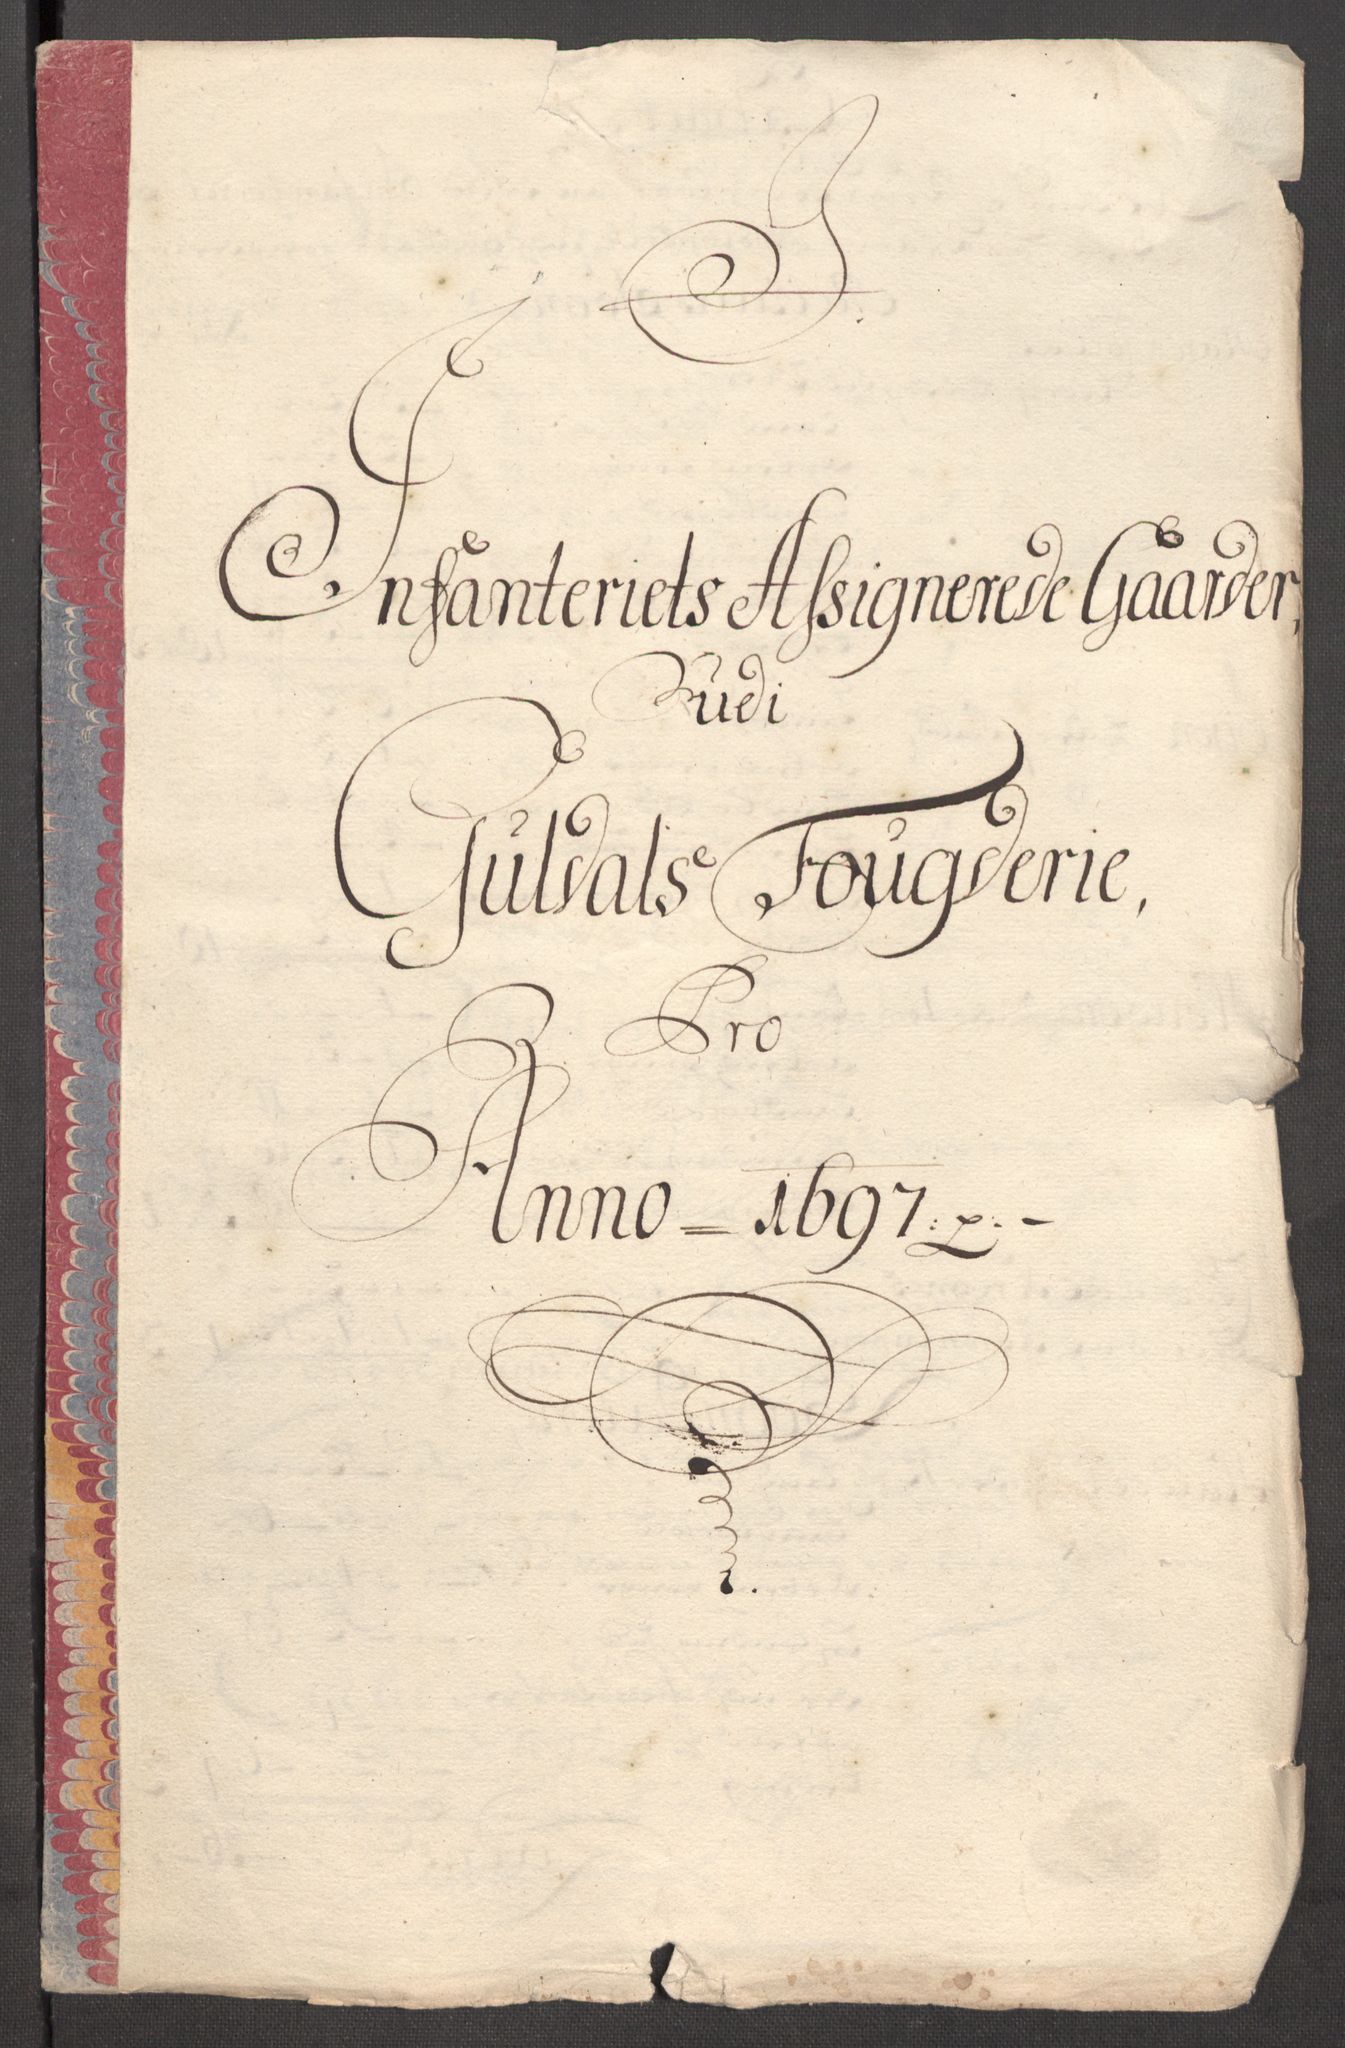 J.
Infanteriets Assignerede Gaarder,
Udi
Guldals Fougderie,
Pro
Anno = 1697